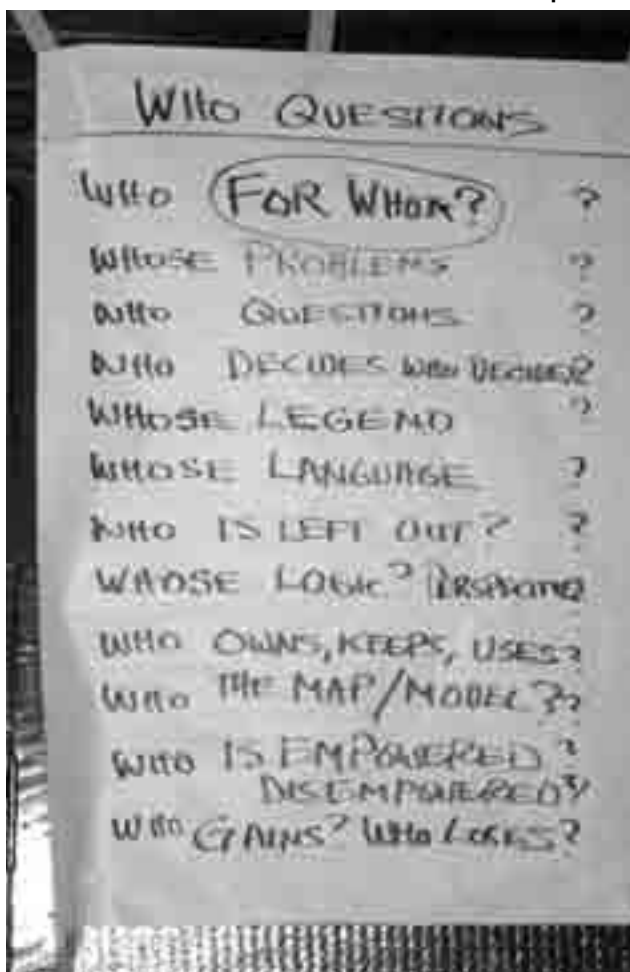 WHO QUESTIONS
WHO FOR WHOM? ?
WHOSE PROBLEMS ?
WHO QUESTIONS ?
WHO DECIDES WHO DECIDES?
WHOSE LEGEND ?
WHOSE LANGUAGE ?
WHO IS LEFT OUT? ?
WHOSE LOGIC?
WHO OWNS, KEEPS, USES?
WHO THE MAP/MODEL??
WHO IS EMPOWERED?
DISEMPOWERED?
WHO GAINS? WHO LOSES?